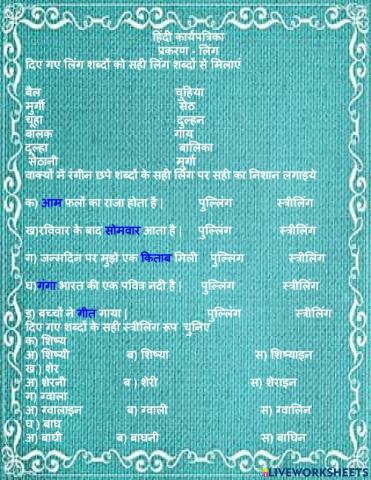 हिंदी कार्यपत्रिका
प्रकरण - लिंग
दिए गए लिंग शब्दों को सही लिंग शब्दों से मिलाएं
बैल चुहिया
मुर्गी सेठ
चूहा दुल्हन
बालक गाय
दूल्हा बालिका
सेठानी मुर्गा
वाक्यों में रंगीन छपे शब्दों के सही लिंग पर सही का निशान लगाइये
क) आम फलों का राजा होता है | पुल्लिंग स्त्रीलिंग
ख)रविवार के बाद सोमवार आता है | पुल्लिंग स्त्रीलिंग
ग) जन्मदिन पर मुझे एक किताब मिली पुल्लिंग स्त्रीलिंग
घ)गंगा भारत की एक पवित्र नदी है | पुल्लिंग स्त्रीलिंग
ड़) बच्चों ने गीत गाया | पुल्लिंग स्त्रीलिंग
दिए गए शब्दों के सही स्त्रीलिंग रूप चुनिए
क) शिष्य
अ) शिष्यी ब) शिष्या स) शिष्याइन
ख ) शेर
अ) शेरनी ब ) शेरी स) शेराइन
ग) ग्वाला
अ) ग्वालाइन ब) ग्वाली स) ग्वालिन
घ ) बाघ
अ) बाघी ब) बाघनी स) बाघिन
LIVEWORKSHEETS